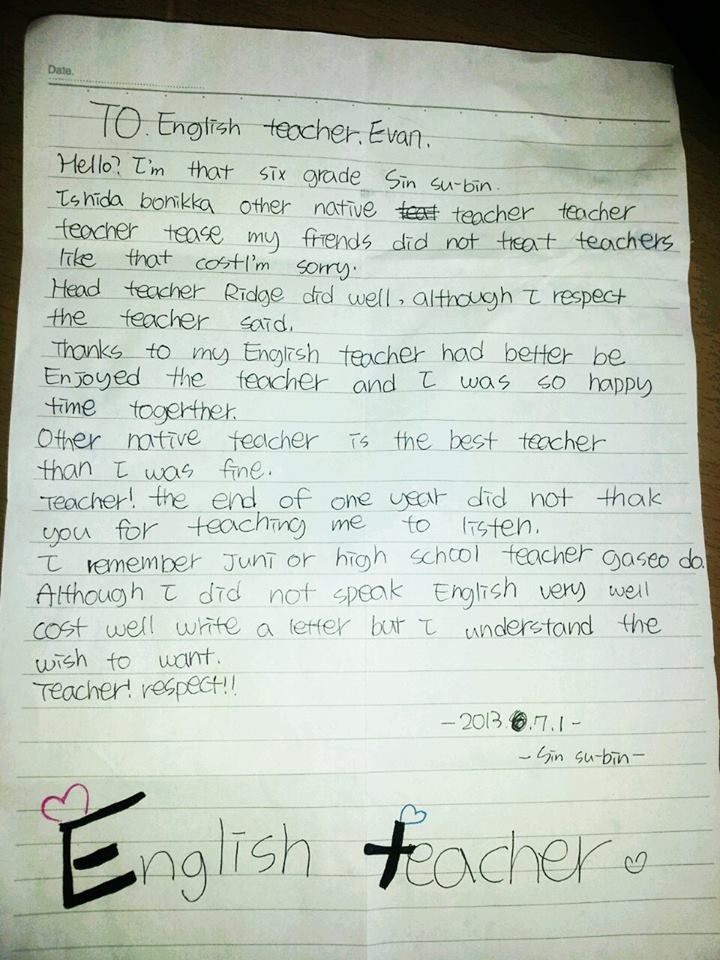 Date.
TO. English teacher. Evan.
Hello? I'm that six grade Sin su-bin.
Ishida bonikka other native teat teacher teacher
teacher tease my friends did not treat teachers
like that cost I'm sorry.
Head teacher Ridge did well, although I respect
the teacher said.
Thanks to my English teacher had better be
Enjoyed the teacher and I was so happy
time togerther.
Other native teacher is the best teacher
than I was fine.
Teacher! the end of one year did not thak
you for teaching me to listen.
I remember Juni or high school teacher gaseo do.
Although I did not speak English very well
cost well write a letter but I understand the
wish to want.
Teacher! respect!!
-2013.6.7.1-
-Sin su-bin-
English teacher